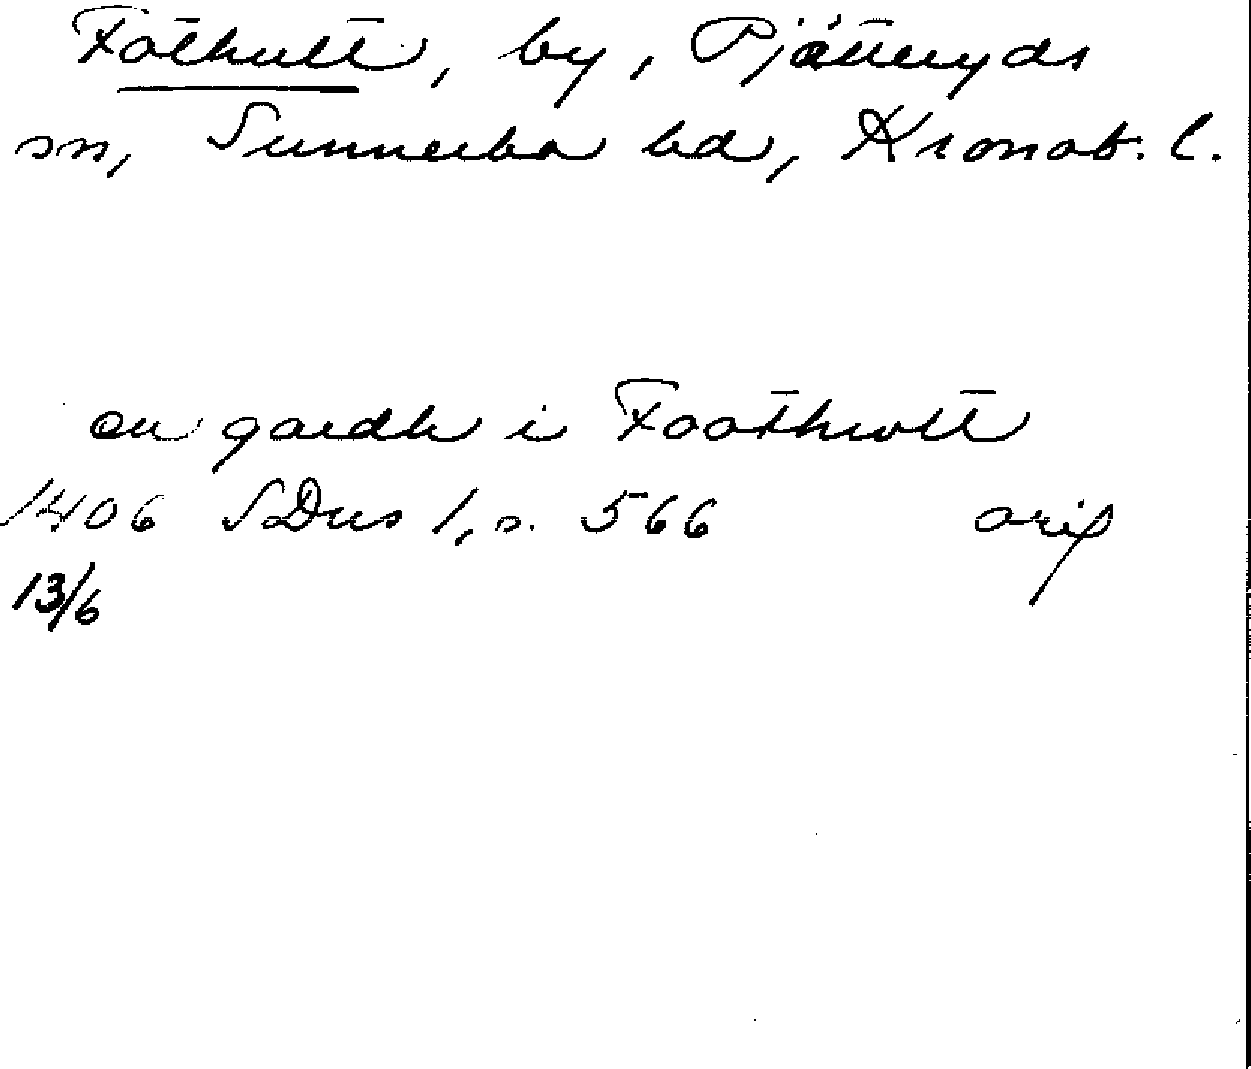 Fothult, by, Pjätteryds
sn, Sunnerbo hd, Kronob. l.
en gardh i Foothwlt
1406 SDns 1, s. 566 orig
13/6